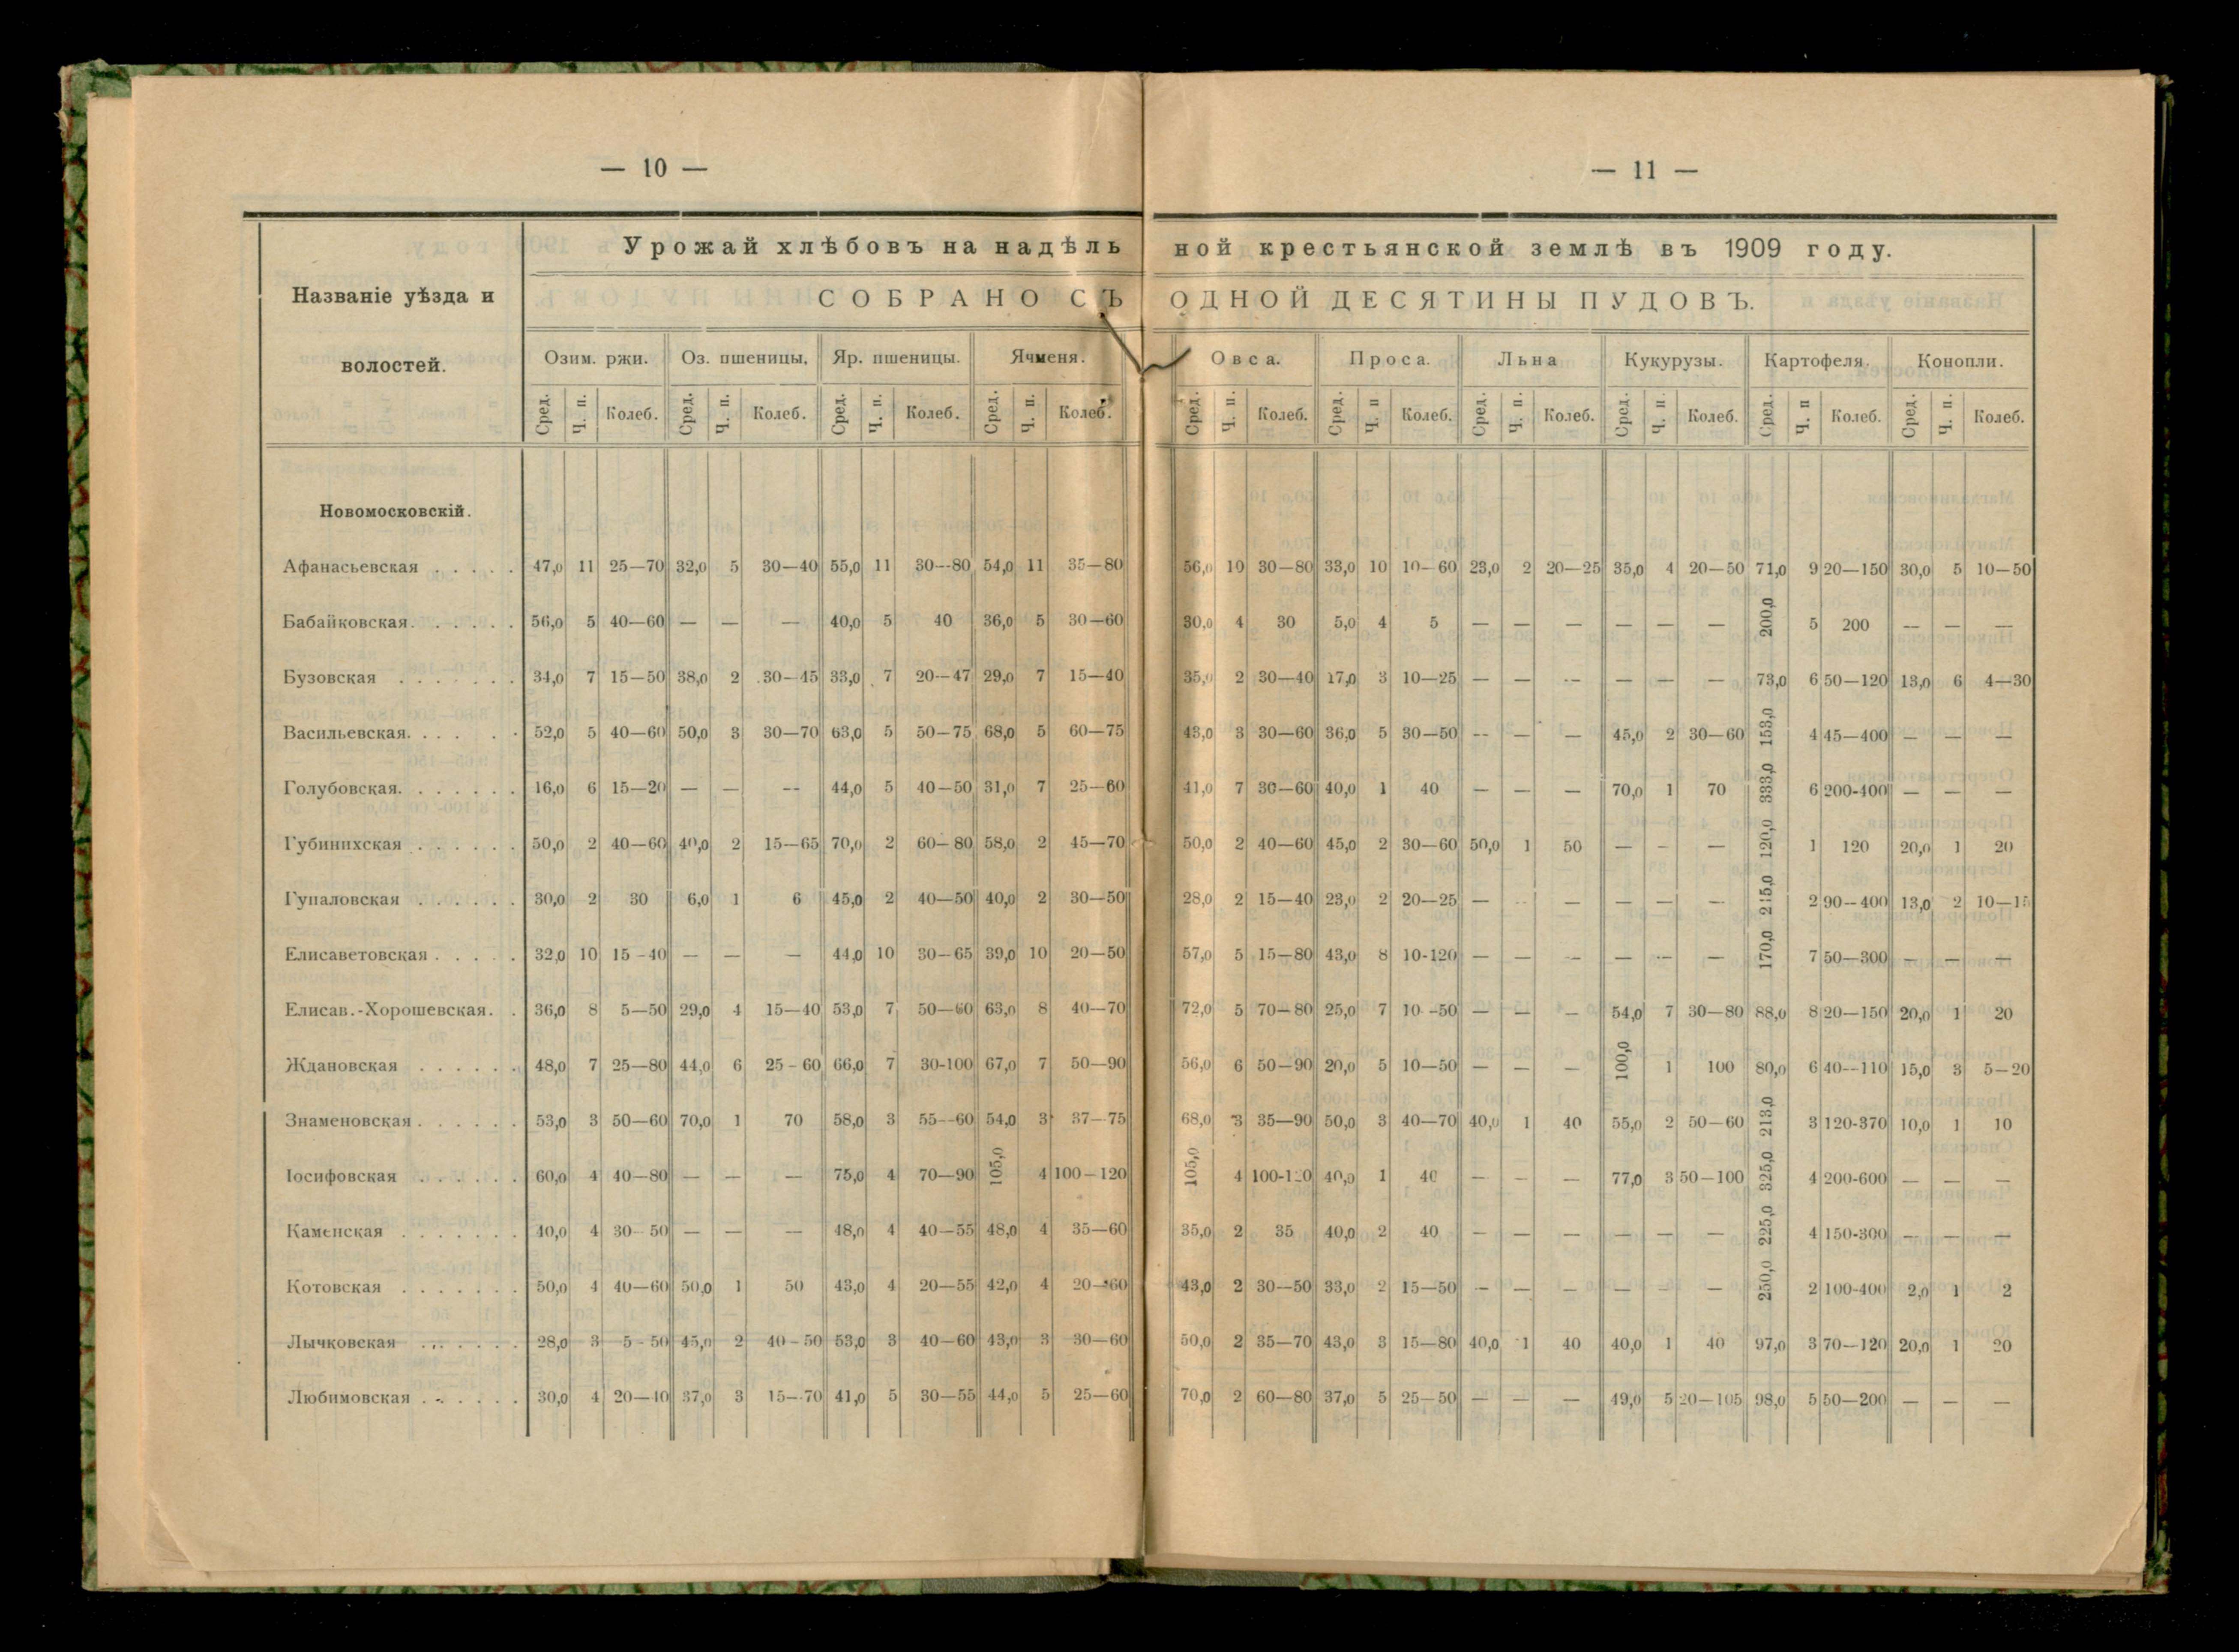 — 10 —
— 11 —
Урожай хлѣбовъ на надѣль ной крестьянской землѣ въ 1909 году.
Названіе уѣзда и волостей.
СОБРАНО СЪ ОДНОЙ ДЕСЯТИНЫ ПУДОВЪ.
Озим. ржи. Оз. пшеницы, Яр. пшеницы. Ячменя. Овса. Проса. Льна Кукурузы. Картофеля. Конопли.
Сред. Ч. п. Колеб. Сред. Ч. п. Колеб. Сред. Ч. п. Колеб. Сред. Ч. п. Колеб. Сред. Ч. п. Колеб. Сред. Ч. п Колеб. Сред. Ч. п. Колеб. Сред. Ч. п. Колеб. Сред. Ч. п Колеб. Сред. Ч. п. Колеб.
Новомосковскій.
Афанасьевская . . . . . 47,0 11 25—70 32,0 5 30—40 55,0 11 30--80 54,0 11 35—80 56,0 10 30—80 33,0 10 10—60 23,0 2 20—25 35,0 4 20—50 71,0 9 20—150 30,0 5 10—50
Бабайковская. . . . . . 56,0 5 40—60 — — — 40,0 5 40 36,0 5 30—60 30,0 4 30 5,0 4 5 — — — — — — 200,0 5 200 — — —
Бузовская . . . . . . . 34,0 7 15—50 38,0 2 30—45 33,0 7 20—47 29,0 7 15—40 35,0 2 30—40 17,0 3 10—25 — — — — — — 73,0 6 50—120 13,0 6 4—30
Васильевская. . . . . . 52,0 5 40—60 50,0 3 30—70 63,0 5 50—75 68,0 5 60—75 43,0 3 30—60 36,0 5 30—50 — — — 45,0 2 30—60 153,0 4 45—400 — — —
Голубовская. . . . . . . 16,0 6 15—20 — — — 44,0 5 40—50 31,0 7 25—60 41,0 7 30—60 40,0 1 40 — — — 70,0 1 70 333,0 6 200-400 — — —
Губинихская . . . . . . 50,0 2 40—60 40,0 2 15—65 70,0 2 60—80 58,0 2 45—70 50,0 2 40—60 45,0 2 30—60 50,0 1 50 — — — 120,0 1 120 20,0 1 20
Гупаловская . . . . . . 30,0 2 30 6,0 1 6 45,0 2 40—50 40,0 2 30—50 28,0 2 15—40 23,0 2 20—25 — — — — — — 215,0 2 90—400 13,0 2 10—15
Елисаветовская . . . . . 32,0 10 15-40 — — — 44,0 10 30—65 39,0 10 20—50 57,0 5 15—80 43,0 8 10-120 — — — — — — 170,0 7 50—300 — — —
Елисав.-Хорошевская. . 36,0 8 5—50 29,0 4 15—40 53,0 7 50—60 63,0 8 40—70 72,0 5 70—80 25,0 7 10-50 — — — 54,0 7 30—80 88,0 8 20—150 20,0 1 20
Ждановская . . . . . . 48,0 7 25—80 44,0 6 25-60 66,0 7 30-100 67,0 7 50—90 56,0 6 50—90 20,0 5 10—50 — — — 100,0 1 100 80,0 6 40--110 15,0 3 5—20
Знаменовская . . . . . . 53,0 3 50—60 70,0 1 70 58,0 3 55--60 54,0 3 37—75 68,0 3 35—90 50,0 3 40—70 40,0 1 40 55,0 2 50—60 213,0 3 120-370 10,0 1 10
Іосифовская . . . . . . 60,0 4 40—80 — — — 75,0 4 70—90 105,0 4 100—120 105,0 4 40,0 1 40 — — — 77,0 3 50—100 325,0 4 200-600 — — —
Каменская . . . . . . . 40,0 4 30—50 — — — 48,0 4 40—55 48,0 4 35—60 35,0 2 35 40,0 2 40 — — — — — — 225,0 4 150-300 — — —
Котовская . . . . . . . 50,0 4 40—60 50,0 1 50 43,0 4 20—55 42,0 4 20—60 43,0 2 30—50 33,0 2 15—50 — — — — — — 250,0 2 100-400 2,0 1 2
Лычковская . . . . . . 28,0 3 5-50 45,0 2 40-50 53,0 3 40—60 43,0 3 30—60 50,0 2 35—70 43,0 3 15—80 40,0 1 40 40,0 1 40 97,0 3 70—120 20,0 1 20
Любимовская . . . . . . 30,0 4 20—40 37,0 3 15—70 41,0 5 30—55 44,0 5 25—60 70,0 2 60—80 37,0 5 25—50 — — — 49,0 5 20—105 98,0 5 50—200 — — —